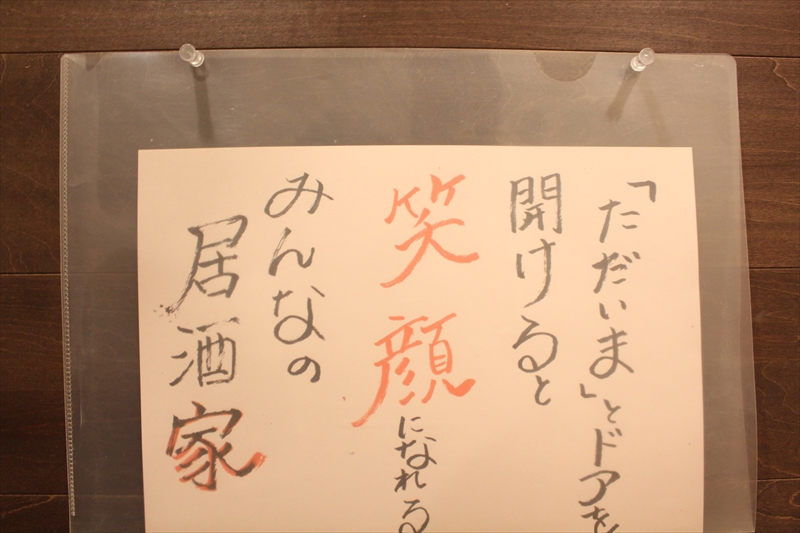 「ただいま」とドアを
開けると
笑顔になれる
みんなの
居酒家